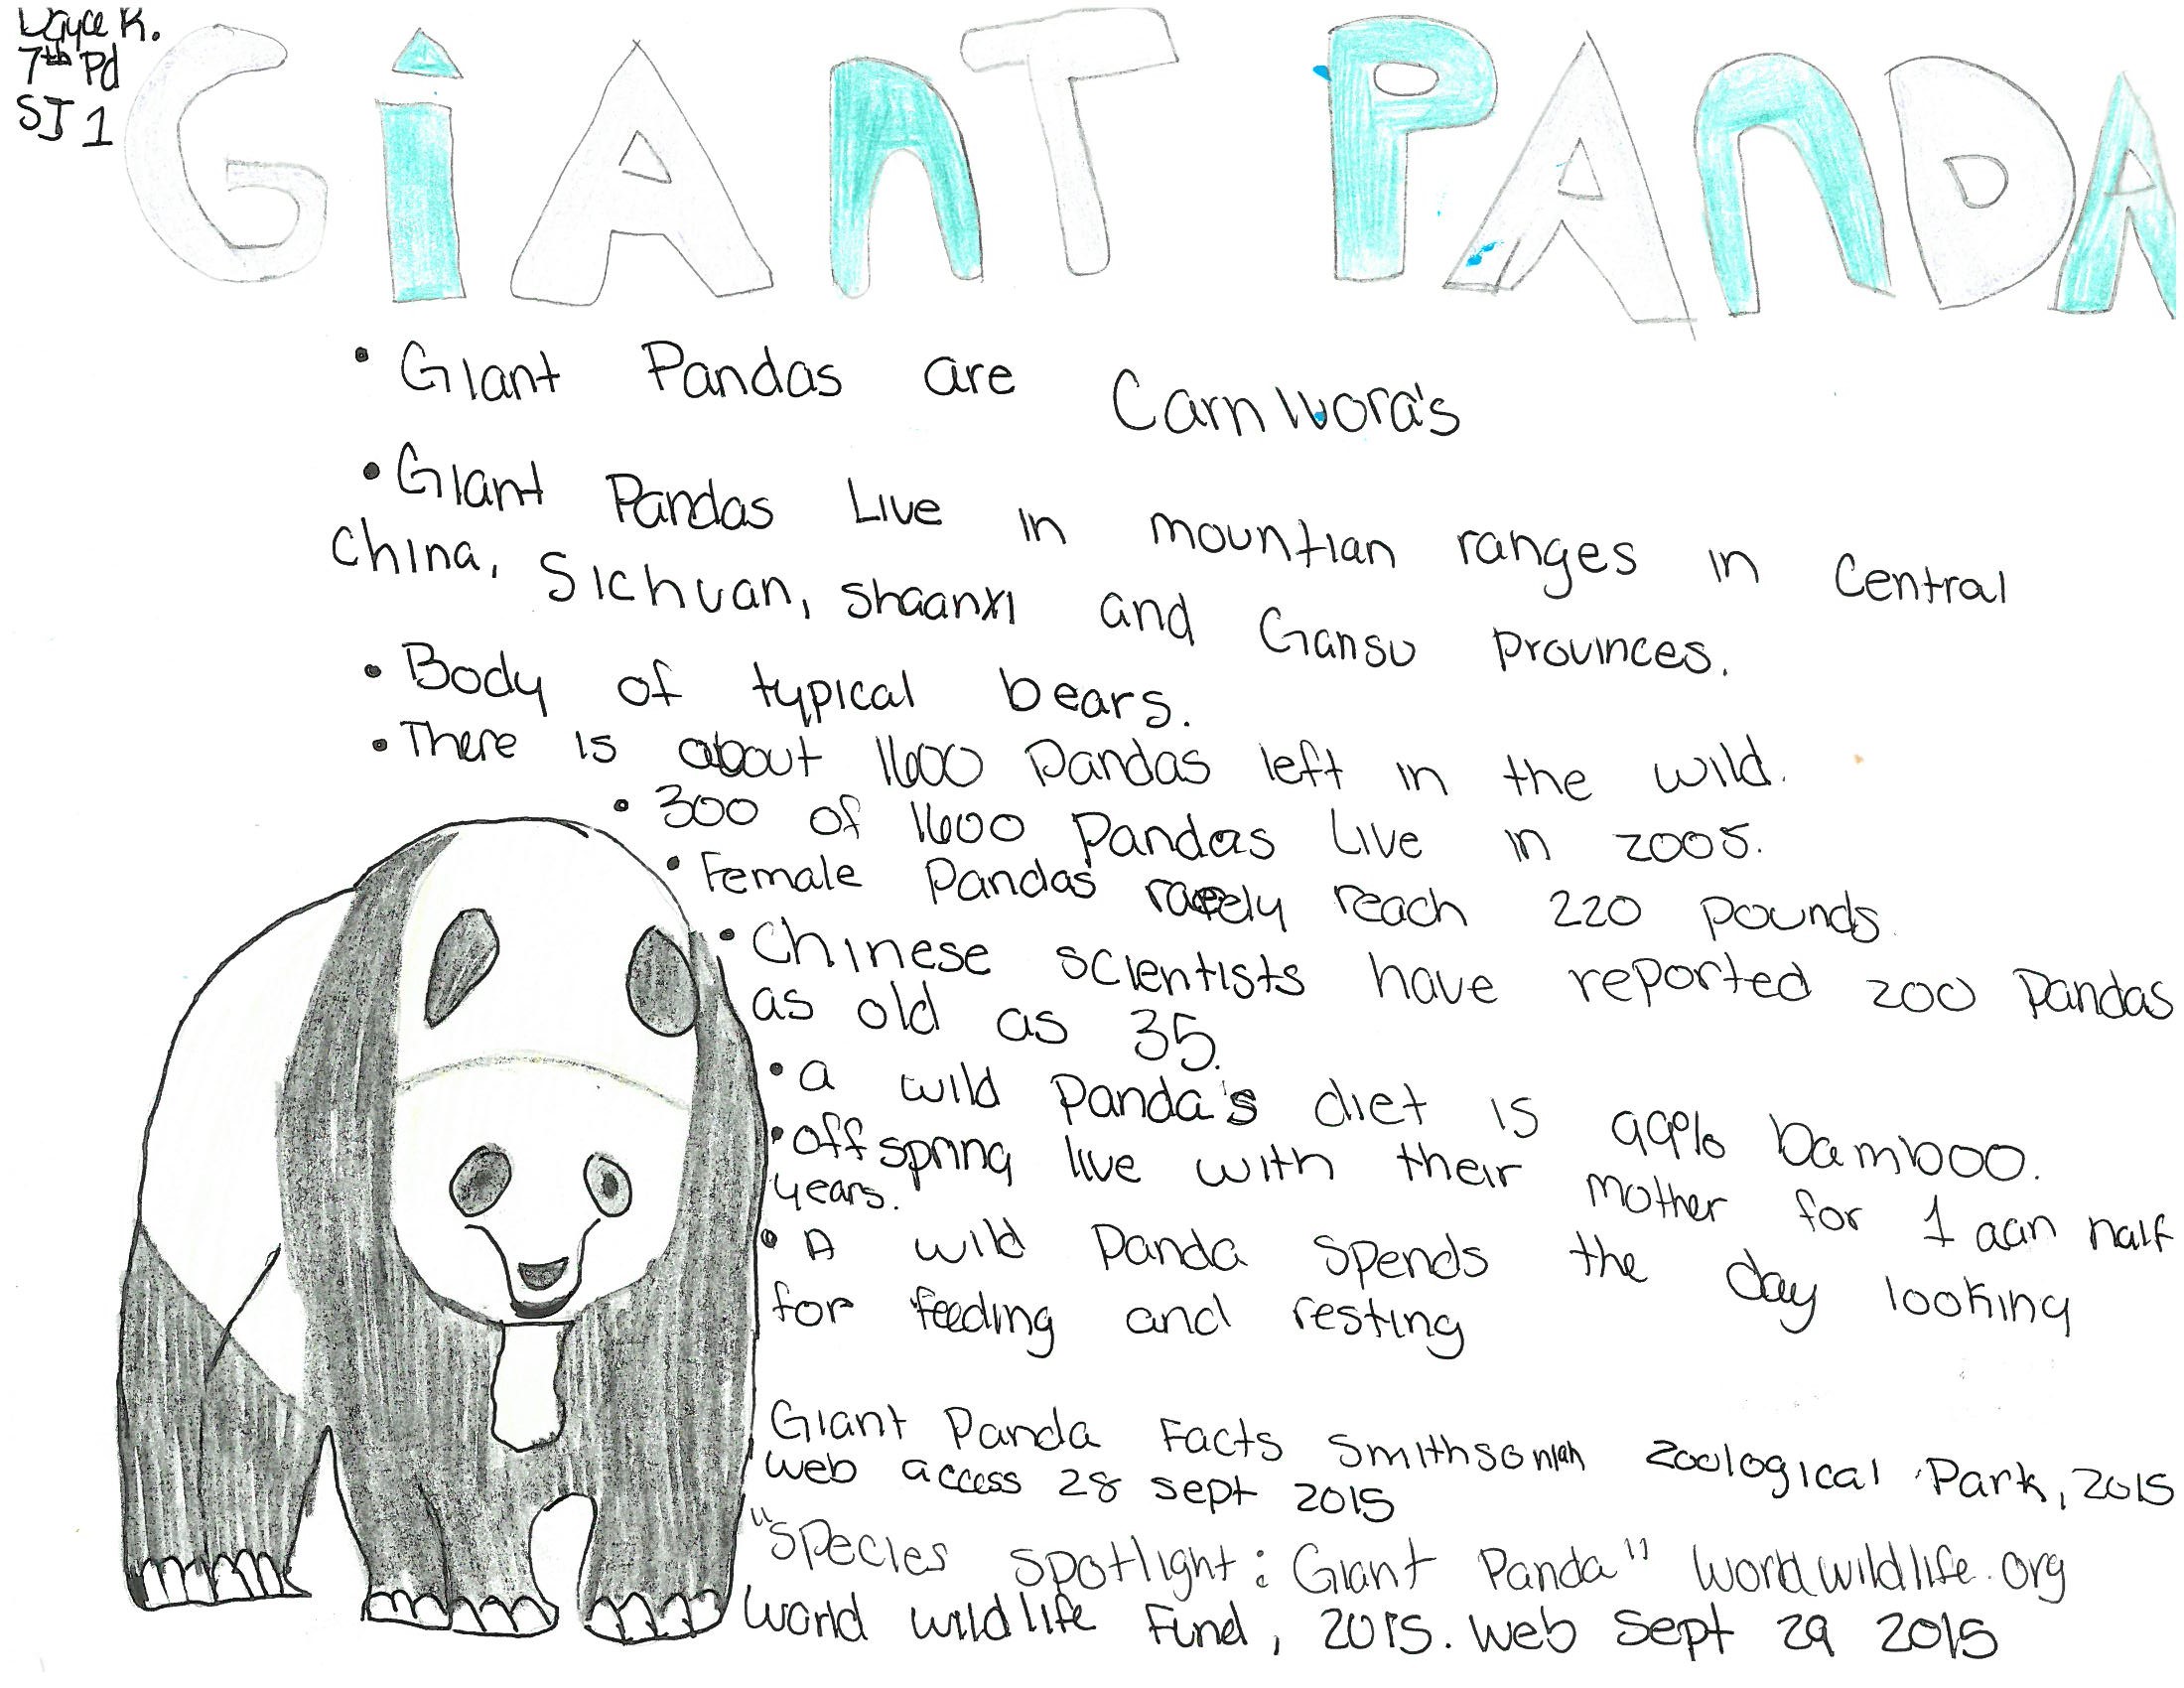 K.
7th Pd
SJ 1
GiAnT PAnDA
• Giant Pandas are Carnivora's
• Giant Pandas Live in mountian ranges in Central
China, Sichuan, Shaanxi and Gansu Provinces.
• Body of typical bears.
• There is about 1600 Pandas left in the wild.
• 300 of 1600 Pandas Live in 2005.
• Female Pandas rarely reach 220 pounds.
• Chinese scientists have reported 200 Pandas
as old as 35.
• a wild Panda's diet is 99% bamboo.
• Offspring live with their mother for 1 aan half
years.
• A wild Panda spends the day looking
for feeding and resting
Giant Panda Facts Smithsonian Zoological Park, 2015
web access 28 sept 2015
"Species Spotlight: Giant Panda" worldwildlife.org
World wildlife Fund, 2015. web Sept 29 2015